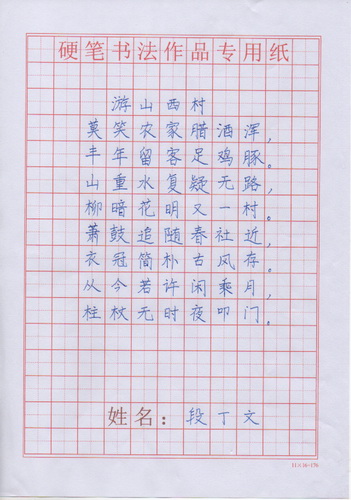 硬笔书法作品专用纸
游山西村
莫笑农家腊酒浑，
丰年留客足鸡豚。
山重水复疑无路，
柳暗花明又一村。
箫鼓追随春社近，
衣冠简朴古风存。
从今若许闲乘月，
柱杖无时夜叩门。
姓名：段丁文